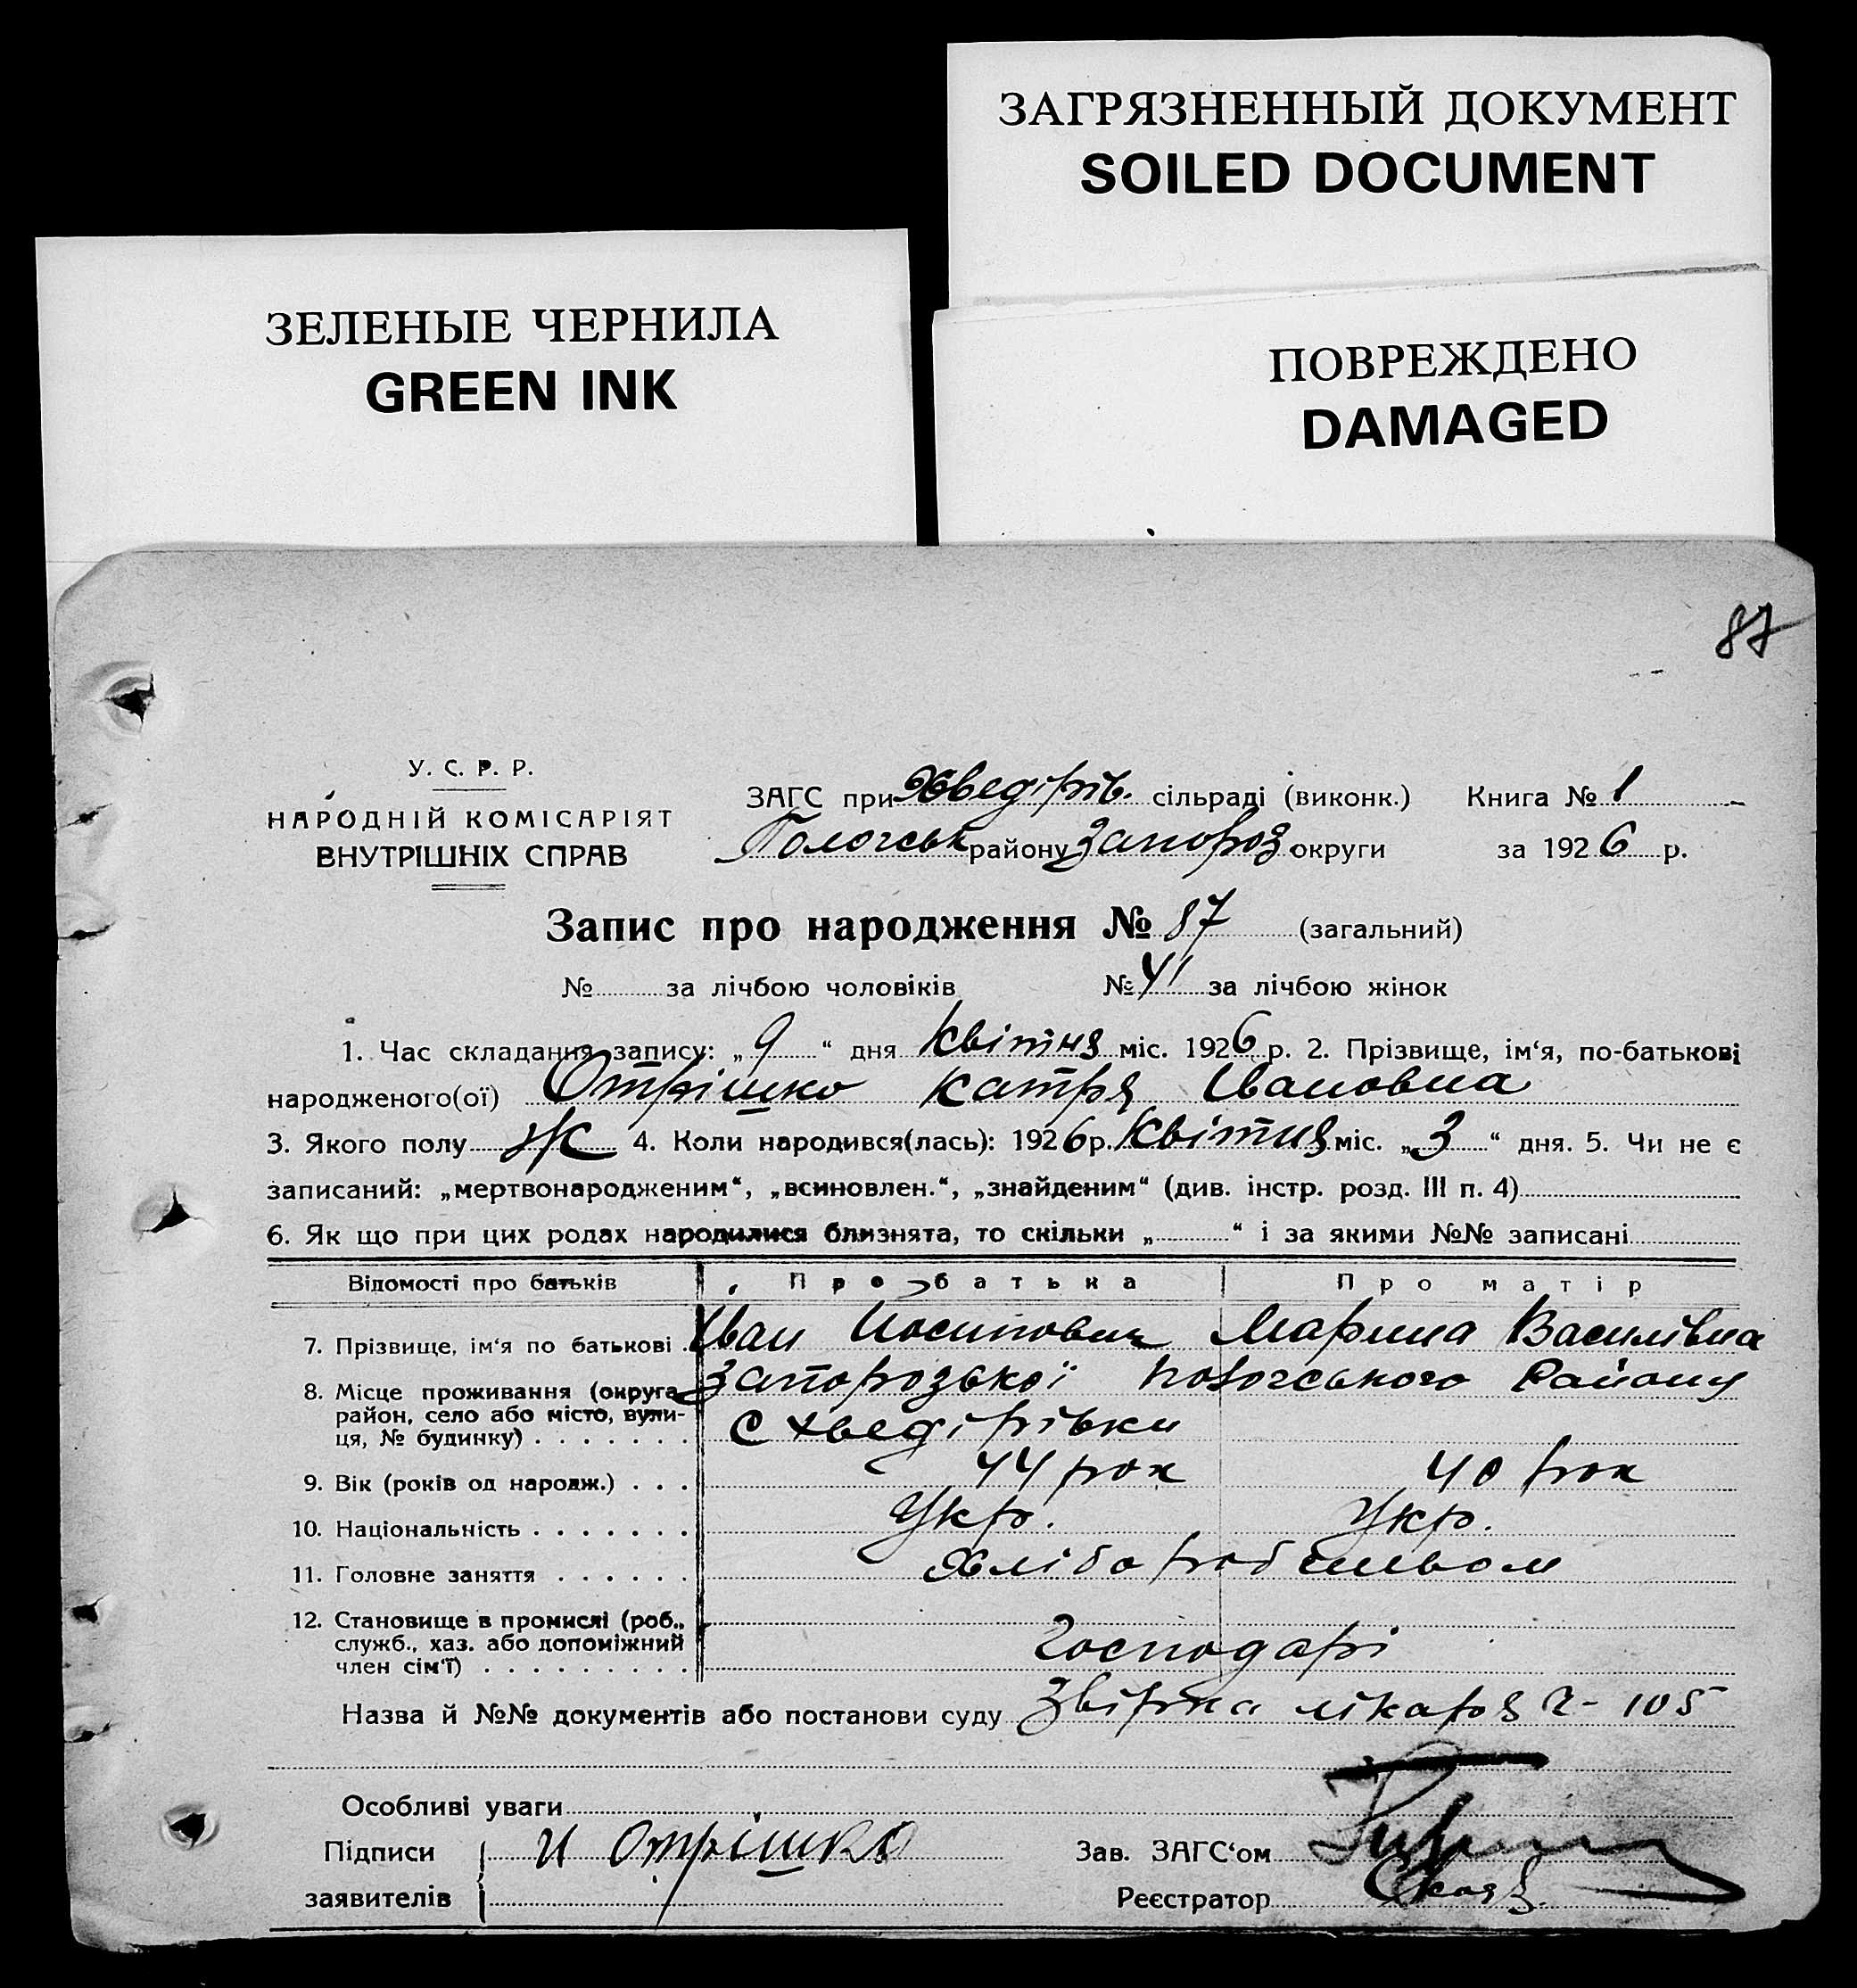 ЗАГРЯЗНЕННЫЙ ДОКУМЕНТ
SOILED DOCUMENT
ЗЕЛЕНЫЕ ЧЕРНИЛА
GREEN INK
ПОВРЕЖДЕНО
DAMAGED
87
У. С. Р. Р.
НАРОДНІЙ КОМІСАРІЯТ
ВНУТРІШНІХ СПРАВ
ЗАГС при Хведірів. сільраді (виконк.) Книга № 1
Пологськ району Запороз округи за 1926 р.
Запис про народження № 87 (загальний)
№ за лічбою чоловіків № 41 за лічбою жінок
1. Час складання запису: „9“ дня Квітня міс. 1926 р. 2. Прізвище, ім‘я, по-батькові
народженого(ої) Отрішко Катря Івановна
3. Якого полу Ж 4. Коли народився(лась): 1926 р. Квітня міс. „3“ дня. 5. Чи не є
записаний: „мертвонародженим“, „всиновлен.“, „знайденим“ (див. інстр. розд. III п. 4)
6. Як що при цих родах народилися близнята, то скільки „ “ і за якими №№ записані
Відомості про батьків Про батька Про матір
7. Прізвище, ім‘я по батькові Іван Йосипович Марина Василівна
8. Місце проживання (округа, Запорозької Пологського Району
район, село або місто, вули- с Хведірівки
ця, № будинку)
9. Вік (років од народж.) 44 рок 40 рок
10. Національність Укр. Укр.
11. Головне заняття Хліборобством
12. Становище в промислі (роб.,
служб., хаз. або допоміжний Господарі
член сім‘ї)
Назва й №№ документів або постанови суду Звірка лікаря 105
Особливі уваги
Підписи И Отрішко Зав. ЗАГС‘ом
заявителів Реєстратор